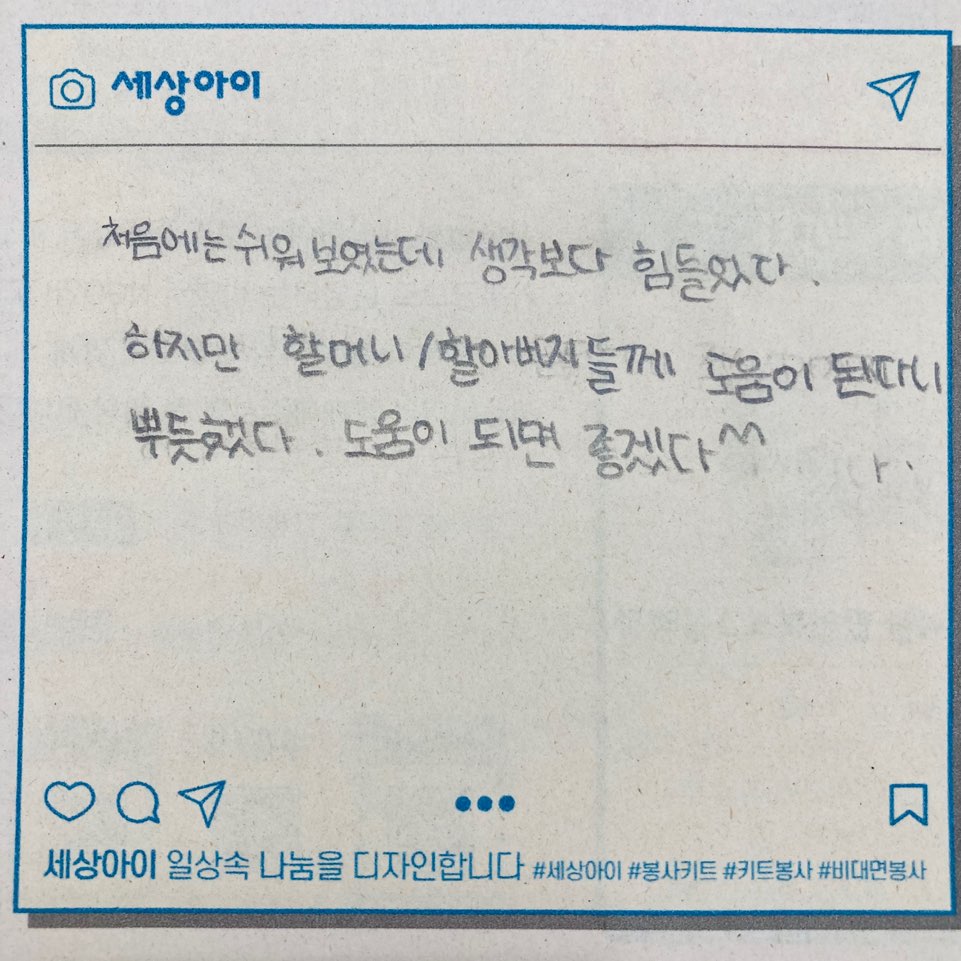 세상아이
처음에는 쉬워 보였는데 생각보다 힘들었다.
하지만 할머니/할아버지들께 도움이 된다니
뿌듯했다. 도움이 되면 좋겠다^^
세상아이 일상속 나눔을 디자인합니다 #세상아이 #봉사키트 #키트봉사 #비대면봉사